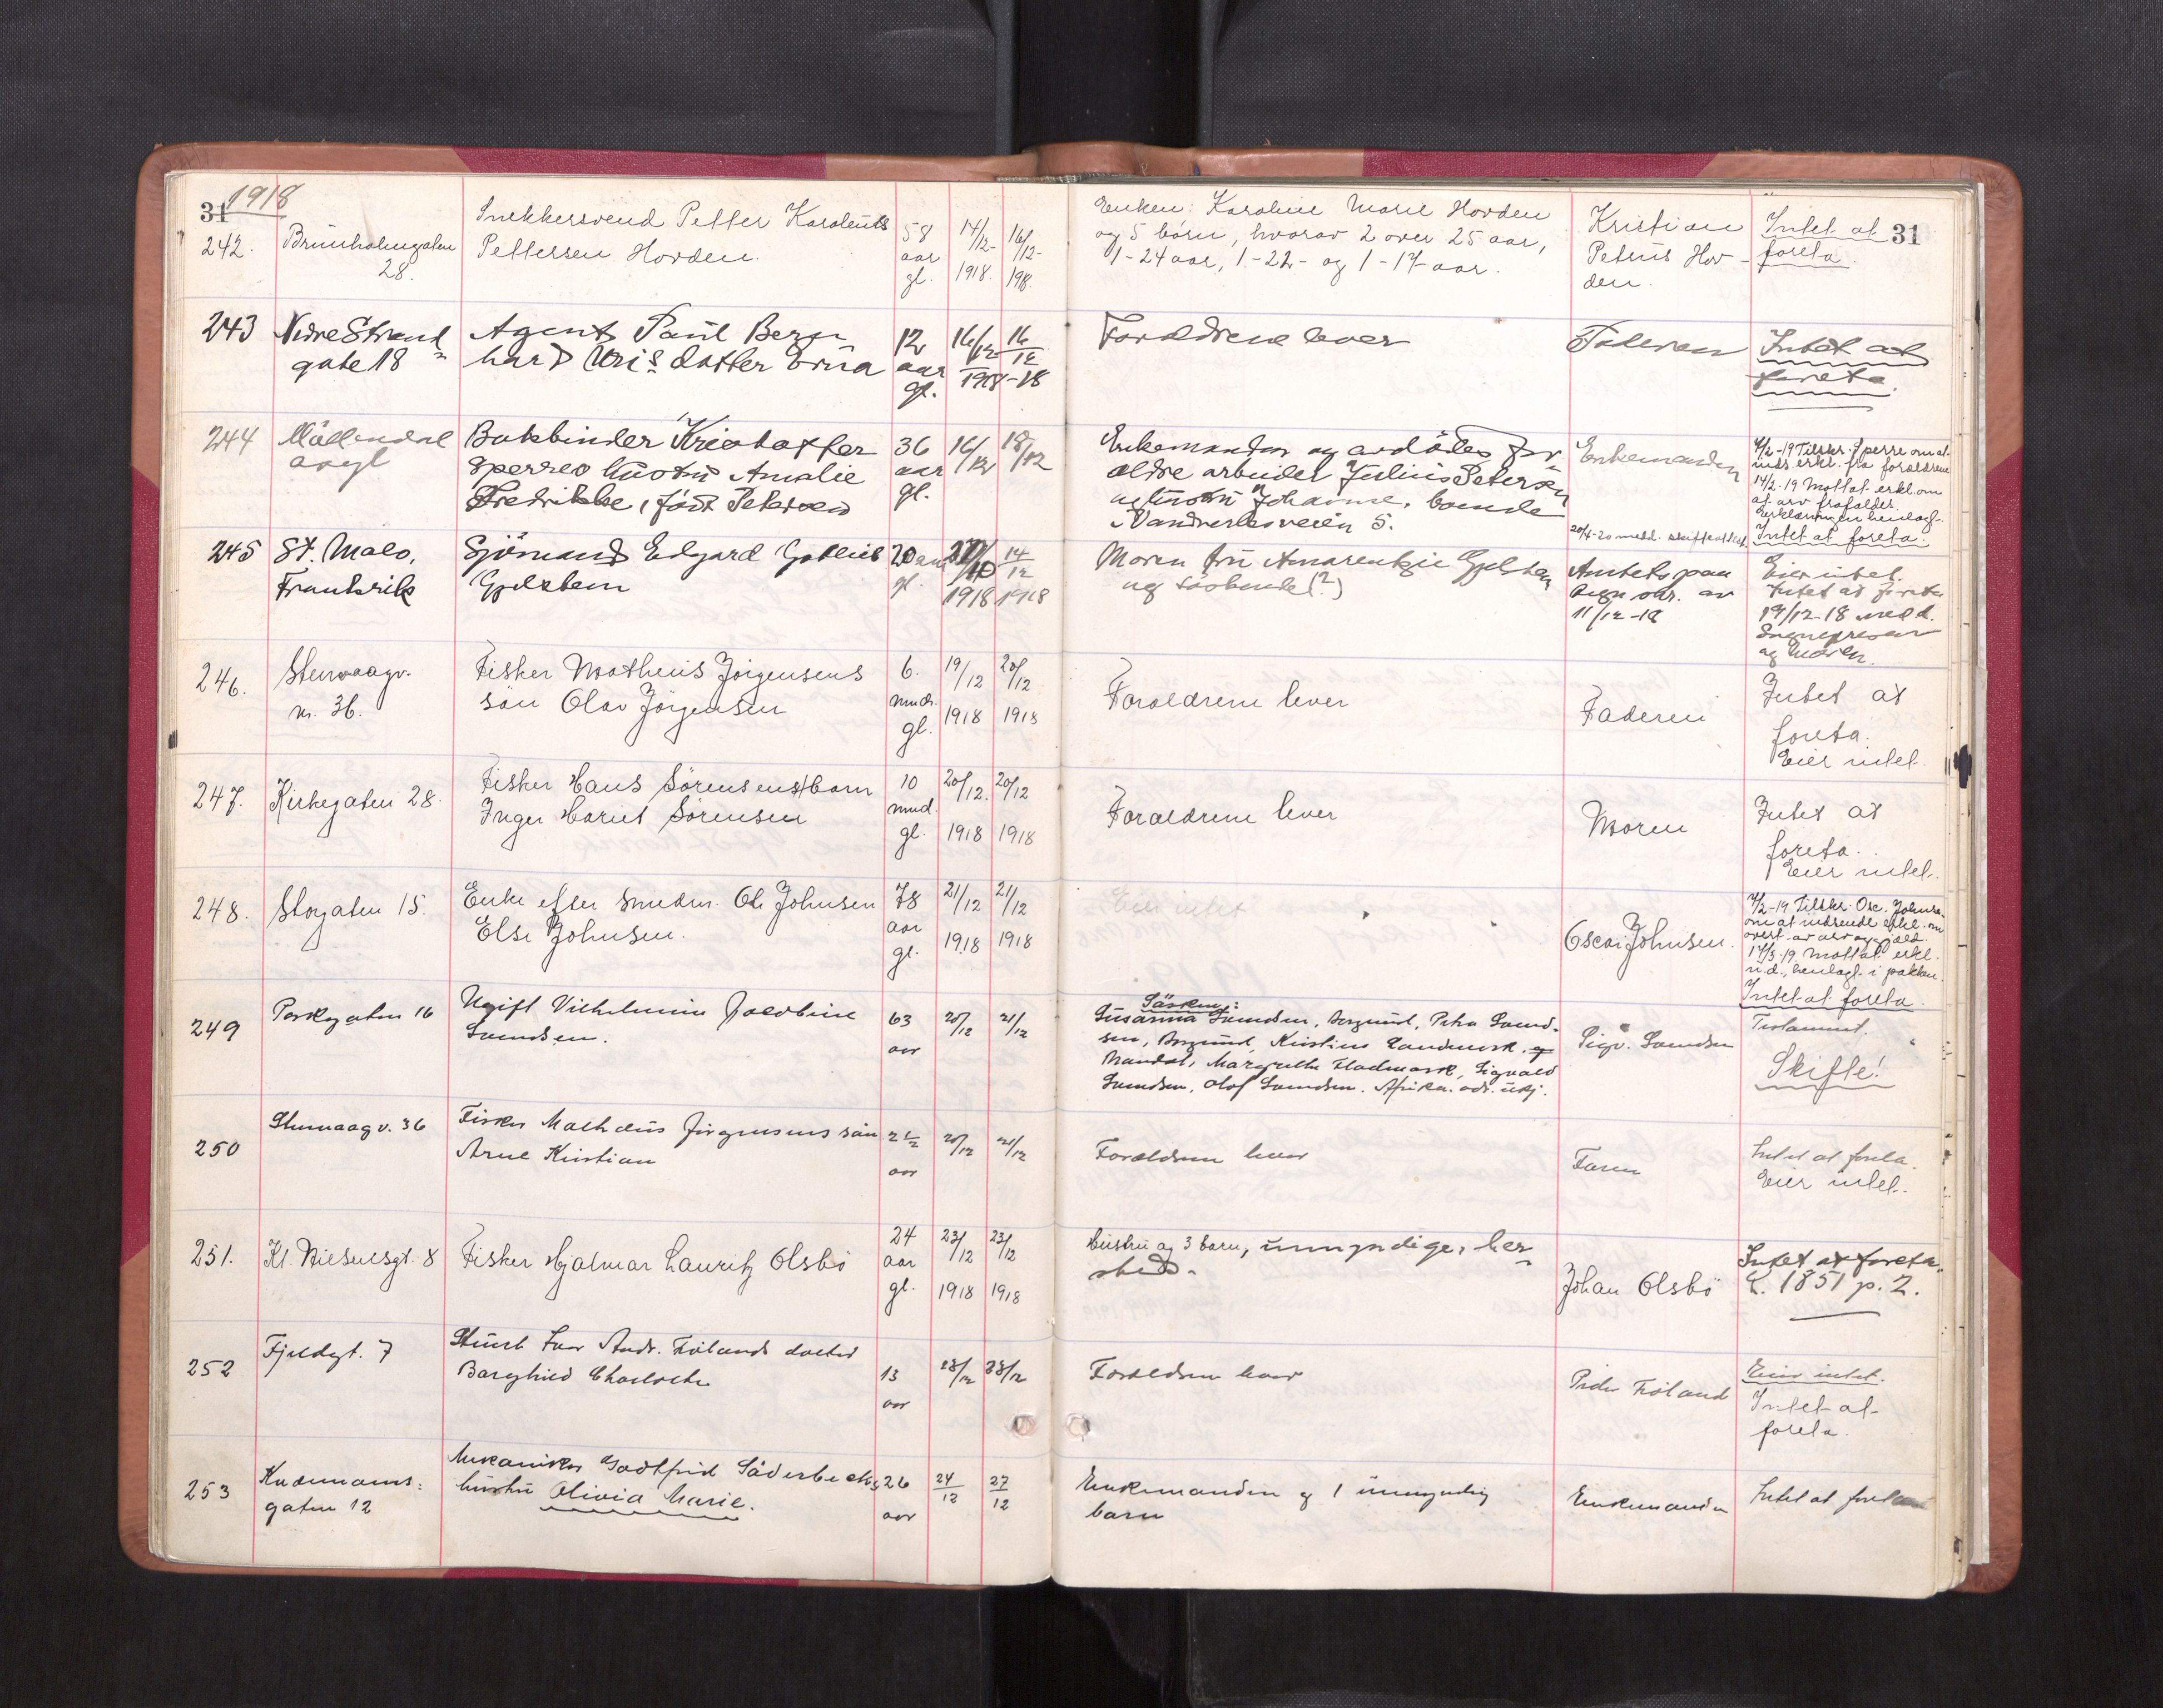 31 1918
242. Brunholmgaten
28.
Snekkersvend Petter Karolius
Pettersen Hovden.
58
aar
gl.
14/12-
1918.
16/12-
1918.
Enken: Karoline Marie Hovden
og 5 børn, hvorav 2 over 25 aar,
1-24 aar, 1-22- og 1-17 aar.
Kristian
Petrus Hov-
den.
Intet at
foreta.
31
243 Nedre Strand
gate 18
Agent Paul Bern
hard datter Erna
12
aar
gl.
16/12
1918
16
12
-18
Forældrene lever
Faderen
Intet at
foreta.
244 Møllendal
Bokbinder Kristoffer
Sperres hustru Amalie
Fredrikke, født Petersen
36
aar
gl.
16/12
18/12
Enkemanden og avdødes for
ældre arbeider Julius Petersen
og hustru Johanne, boende
5.
Enkemanden
20/4-20 medd. skifteattest
4/2-19 Tilskr. Sperre om at
inds. erkl. fra forældrene
14/2-19 Mottat erkl. om
at arv frafalder.
Erklæringen henlagt.
Intet at foreta.
245 St. Malo,
Frankrik
Sjømand Edgard Gotlieb
Gjelsten
20 aar
gl.
10
1918
14
12
1918
Moren fru Gjelsten
og søskende (?)
Amtets paa
av
11/12-18
Eier intet.
Intet at foreta
19/12-18 medd.
og moren.
246. Stenvaagv.
nr. 36.
Fisker Matheus Jørgensens
søn Olav Jørgensen
6.
mndr.
gl.
19/12
1918
20/12
1918
Forældrene lever
Faderen
Intet at
foreta.
Eier intet.
247. Kirkegaten 28.
Fisker Hans Sørensens barn
Inger Harriet Sørensen
10
mnd.
gl.
20/12.
1918
20/12
1918
Forældrene lever
Moren
Intet at
foreta.
Eier intet.
248. Storgaten 15.
Enke efter smedm. Ole Johnsen
Else Johnsen.
78
aar
gl.
21/12
1918
21/12
1918
Eier intet
Oscar Johnsen.
4/2-19 Tilskr. Osc. Johnsen
om at indsende erkl. om
overt. av arv og gjæld.
17/3-19 Mottat erkl.
n.d., henlagt i pakken.
Intet at foreta.
249 Parkgaten 16
Ugift Vilhelmine Jacobine
Svendsen.
63
aar
20/12
21/12
Søsken:
Susanna Svendsen, Borgund, Petra Svend-
sen, Borgund, Kristine Landmark, og
Mandal, Margrethe Fladmark, Sigvald
Svendsen, Olaf Svendsen. Afrika. adr. ukj.
Sigv. Svendsen
Testament.
Skifte!
250
Stenvaagv. 36
Fisker Mathæus Jørgensens søn
Arne Kristian
2 1/2
aar
20/12
21/12
Forældrene lever
Faren
Intet at foreta.
Eier intet.
251. Kl. Nielsensgt. 8
Fisker Hjalmar Lauritz Olsbø
24
aar
gl.
23/12
1918
23/12
1918
Hustru og 3 barn, umyndige, her
steds.
Johan Olsbø
Intet at foreta.
L. 1851 p. 2.
252
Fjeldgt. 7
And. Frølands datter
Borghild Charlotte
13
aar
23/12
23/12
Forældrene lever
Peder Frøland
Eier intet.
Intet at
foreta.
253
Rødemanns-
gaten 12
Mekaniker Godtfrid Söderbecks
hustru Olivia Marie.
26
aar
24
12
27
12
Enkemanden og 1 umyndig
barn
Enkemanden
Intet at foreta